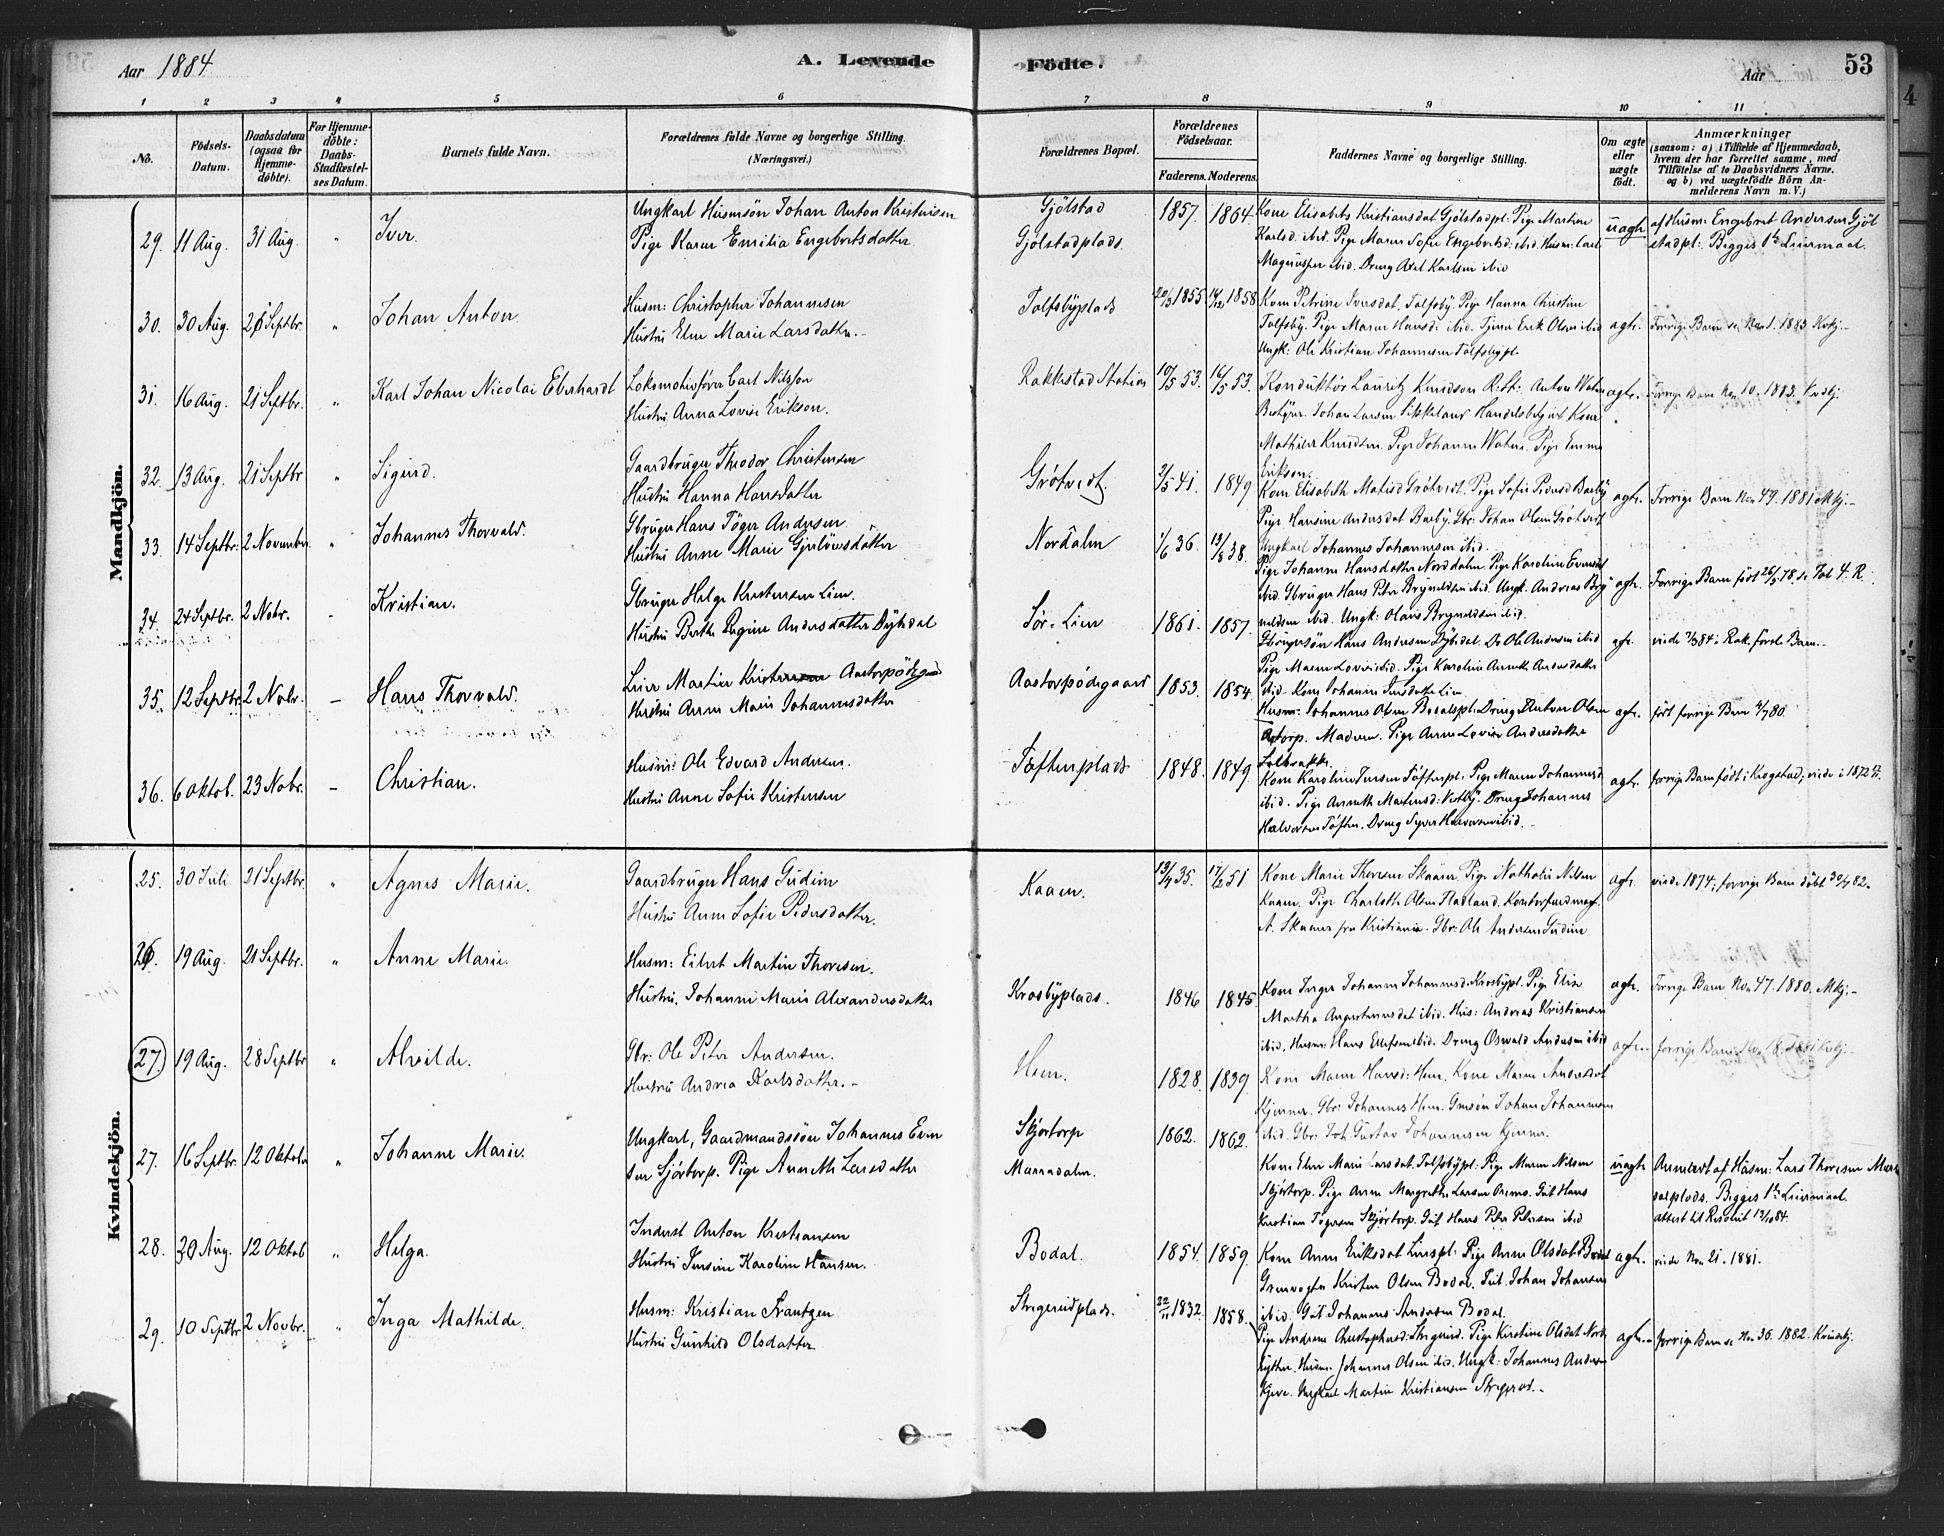 Aar 1884
A. Levende Födte.
Aar
53
1 2 3 4 5 6 7 8 9 10 11
No.
Födsels-Datum.
Daabsdatum (ogsaa for Hjemme-döbte).
For Hjemme-döbte: Daabs-Stadfæstel-ses Datum.
Barnets fulde Navn.
Forældrenes fulde Navne og borgerlige Stilling. (Næringsvei.)
Forældrenes Bopæl.
Forældrenes Födselsaar.
Faderens. Moderens.
Faddernes Navne og borgerlige Stilling.
Om ægte eller uægte födt.
Anmærkninger
(saasom: a) i Tilfælde af Hjemmedaab,
hvem der har forrettet samme, med
Tilföielse af to Daabsvidners Navne.
og b) ved uægtefödte Börn An-
melderens Navn m. V.)
Mandkjön.
29. 11 Aug. 31 Aug. " Iver.
Ungkarl Husmsön Johan Anton Kristensen
Pige Karen Emilia Engebretsdatter
Gjölstad
Gjölstadplads.
1857. 1864.
Kone Elisabeth Kristiansdat Gjölstadpl: Pige Martine
Karlsd. ibid. Pige Maren Sofie Engebretsd: ibid. Husm: Carl
ibid. Dreng Axel Karlsen ibid
uægte
af Husm: Engebret Andersen Gjöl
stadpl: Begges 1ste Leiermaal.
30. 30 Aug. 21 Septbr. " Johan Anton
Husm: Christopher Johannesen
Hustru Elen Marie Larsdatter.-
Tolfsbyplads
20/3 1855 14/12 1858
Kone Petrine Iversdat. Tolfsby. Pige Hanna Christine
Tolfsby. Pige Maren Hansd: ibid. Tjener Erik Olsen ibid
Ungk: Ole Kristian Johannesen Tolfsbypl.
ægte.
Forrige Barn se No 1. 1883. Kvkj.-
31. 16 Aug. 21 Septbr. " Karl Johan Nicolai Eberhardt
Lokomotivförer Carl Nilsson
Hustru Anna Lovise Erikson.
Rakkestad Station
10/5 53. 16/5 53.
Konduktör Lauritz Knudson R. St: Anton
Bestyrer. Johan Larsen Handelsbetjent Kone
Mathilde Knudsen. Pige Johanne Pige Emma
Erikson.
ægte.
Forrige Barn No 10. 1883. Kvdkj:
32. 13 Aug. 21 Septbr " Sigurd.
Gaardbruger Theodor Christensen
Hustru Hanna Hansdatter
Grötvedt.
2/5 41. 1849
Kone Elisabeth Matisd Grötvedt. Pige Sofie Pedersd Bærby
Pige Hansine Andersdat Bærby. Gbr: Johan Olsen Grötvedt
Ungkarl Johannes Johannesen ibid.
ægte.
Forrige Barn No 49. 1881. Mkj.-
33. 14 Septbr. 2 November. " Johannes Thorvald.
Gbruger Hans Töger Andersen
Hustru Anne Marie Gjerlöwsdatter
Nordalen
1/6 36. 13/8 38.
Pige Johanne Hansdatter Norddalen. Pige Karoline Evensdat
ibid. Gbruger Hans Peter Bryneldsen ibid. Ungk. Andreas Bry
neldsen ibid. Ungk: Olavis Bryneldsen ibid.
ægte.
Forrige Barn födt 26/5 78. se Tab 4. R.
34. 24 Septbr. 2 Nobr. - Kristian.
Gbruger Helge Kristensen Lien.
Hustru Berthe Regine Andersdatter Dybdal
Sör-Lien
1861. 1857.
Gbrugersön Hans Andersen Dybdal. Do Ole Andersen ibid
Pige Maren Lovise ibid. Pige Karoline Annette Andersdatter
ibid. Kone Johanne Lien
ægte.
viede 7/3 84 i Rak. förste Barn.-
35. 12 Septbr. 2 Nobr. - Hans Thorvald.
Leier Martin Kristensen Aastorpödegaard
Hustru Anne Marie Johannesdatter
Aastorpödegaard
1853. 1854
Husm: Johannes Olsen Bodalspl: Dreng Anton Olsen
Aastorp. Madsen. Pige Anne Lovise Andersdatter
Solbrækk.
ægte.
födt forrige Barn 4/7 80.
36. 6 Oktob. 23 Nobr. - Christian.
Husm: Ole Edvard Andersen.
Hustru Anne Sofie Kristensen
Töftenplads
1848. 1849.
Kone Karoline Jensen Töftenpl. Pige Maren Johannesd.
ibid. Pige Annette Martinsd: Vestby. Dreng Johannes
Halvorsen Töften. Dreng Syver Halvorsen ibid.
ægte.
forrige Barn födt i Krogstad; viede i 1872
Kvindekjön.
25. 30 Juli 21 Septbr. " Agnes Marie.
Gaardbruger Hans Gudim
Hustru Anne Sofie Pedersdatter.
Kaaen.
13/4 35. 17/6 51
Kone Marie Thoresen Skaarer. Pige Nathalie Nilsen
Kaaen. Pige Charlotte Olsen Flatland. Kontorfuldmægt.
A. Skaarer fra Kristiania. Gbr: Ole Andersen Gudim
ægte.
viede 1874; forrige Barn döbt 30/7 82.
26. 19 Aug. 21 Septbr. " Anne Marie.
Husm: Eilert Martin Thoresen.
Hustru. Johanne Marie Alexandersdatter
Krosbyplads.
1846 1845
Kone Inger Johanne Johannesd. Krosbypl. Pige Elise
Martha Augustinusdat ibid. Hus: Andreas Kristiansen
ibid. Husm: Hans Ellefsen ibid. Dreng Oswald Andersen ibid
ægte.
Forrige Barn No 47. 1880. Mkj.-
27. 19 Aug. 28 Septbr " Alvilde.
Gbr: Ole Peter Andersen.
Hustru Andrea Karlsdatter.-
Hem.
1828. 1839.
Kone Maren Hansd: Hem. Kone Maren Andersdat
Kjenner. Gbr: Johannes Hem. Gmsön Johan Johannesen
ibid. Gbr: Joh. Gustav Johannesen Kjenner.
ægte.
forrige Barn No 18. 1881 Kvkj.-
27. 16 Septbr. 12 Oktober " Johanne Marie.
Ungkarl, Gaardmandssön Johannes Even
sen Sjörtorp. Pige Annette Larsdatter
Skjörtorp
Marnadalen.
1862. 1862.
Kone Elen Marie Larsdat. Tolfsbypl: Pige Maren Nilsen
Skjörtorp. Pige Anne Margrethe Larsen Gut Hans
Kristian Tögersen Skjörtorp. Gut Hans Peter Petersen ibid
uægte
Anmeldt af Husm: Lars Thoresen Marn
dalplads. Begges 1ste Leiermaal.
attest til Residiet 13/10 84.
28. 30 Aug. 12 Oktob " Helga.
Inderst Anton Kristiansen
Hustru Jensine Karoline Hansen.
Bodal.
1854. 1859.
Kone Anne Eriksdat Linspl: Pige Anne Olsdat Bodal
Grenvogter Kristen Olsen Bodal. Gut Johan Johansen
ibid. Gut Johannes Andersen Bodal.
ægte.
viede No 21. 1881.
29. 10 Septbr 2 Novbr. " Inga Mathilde.
Husm: Kristian Frantzen
Hustru Gunhild Olsdatter
Stegerudplads.
22/11 1832. 1858.
Pige Andrine Christophersd: Stegerud. Pige Kirstine Olsdat Nord
Husm. Johannes Olsen ibid. Ungk: Johannes Andersen
Ungkarl Martin Kristiansen Stegerud.-
ægte.-
forrige Barn se No 36. 1882. Kvindekj.